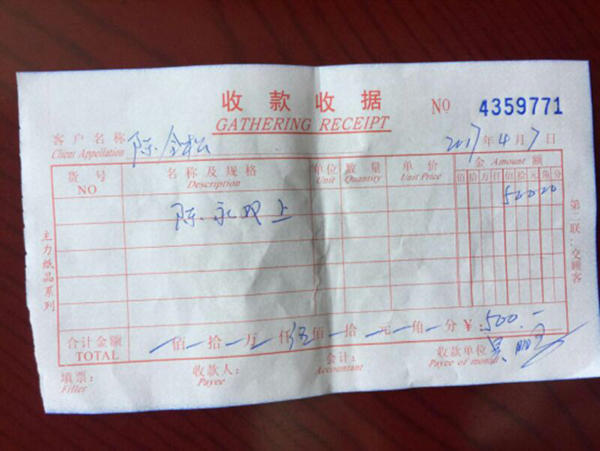 收款收据 № 4359771
GATHERING RECEIPT
客户名称 陈金松 2017年4月7日
Client Appellation
货号 名称及规格 单位 数量 单价 金 Amount 额
NO Description Unit Quantity Unit Price 佰 拾 万 仟 佰 拾 元 角 分
50000
陈永双上
合计金额 一佰一拾一万一仟伍佰一拾一元一角一分 ¥:500.—
TOTAL
填票: 收款人: 会计: 收款单位
Filler Payee Accountant Payee of money
主力纸品系列
第二联:交顾客